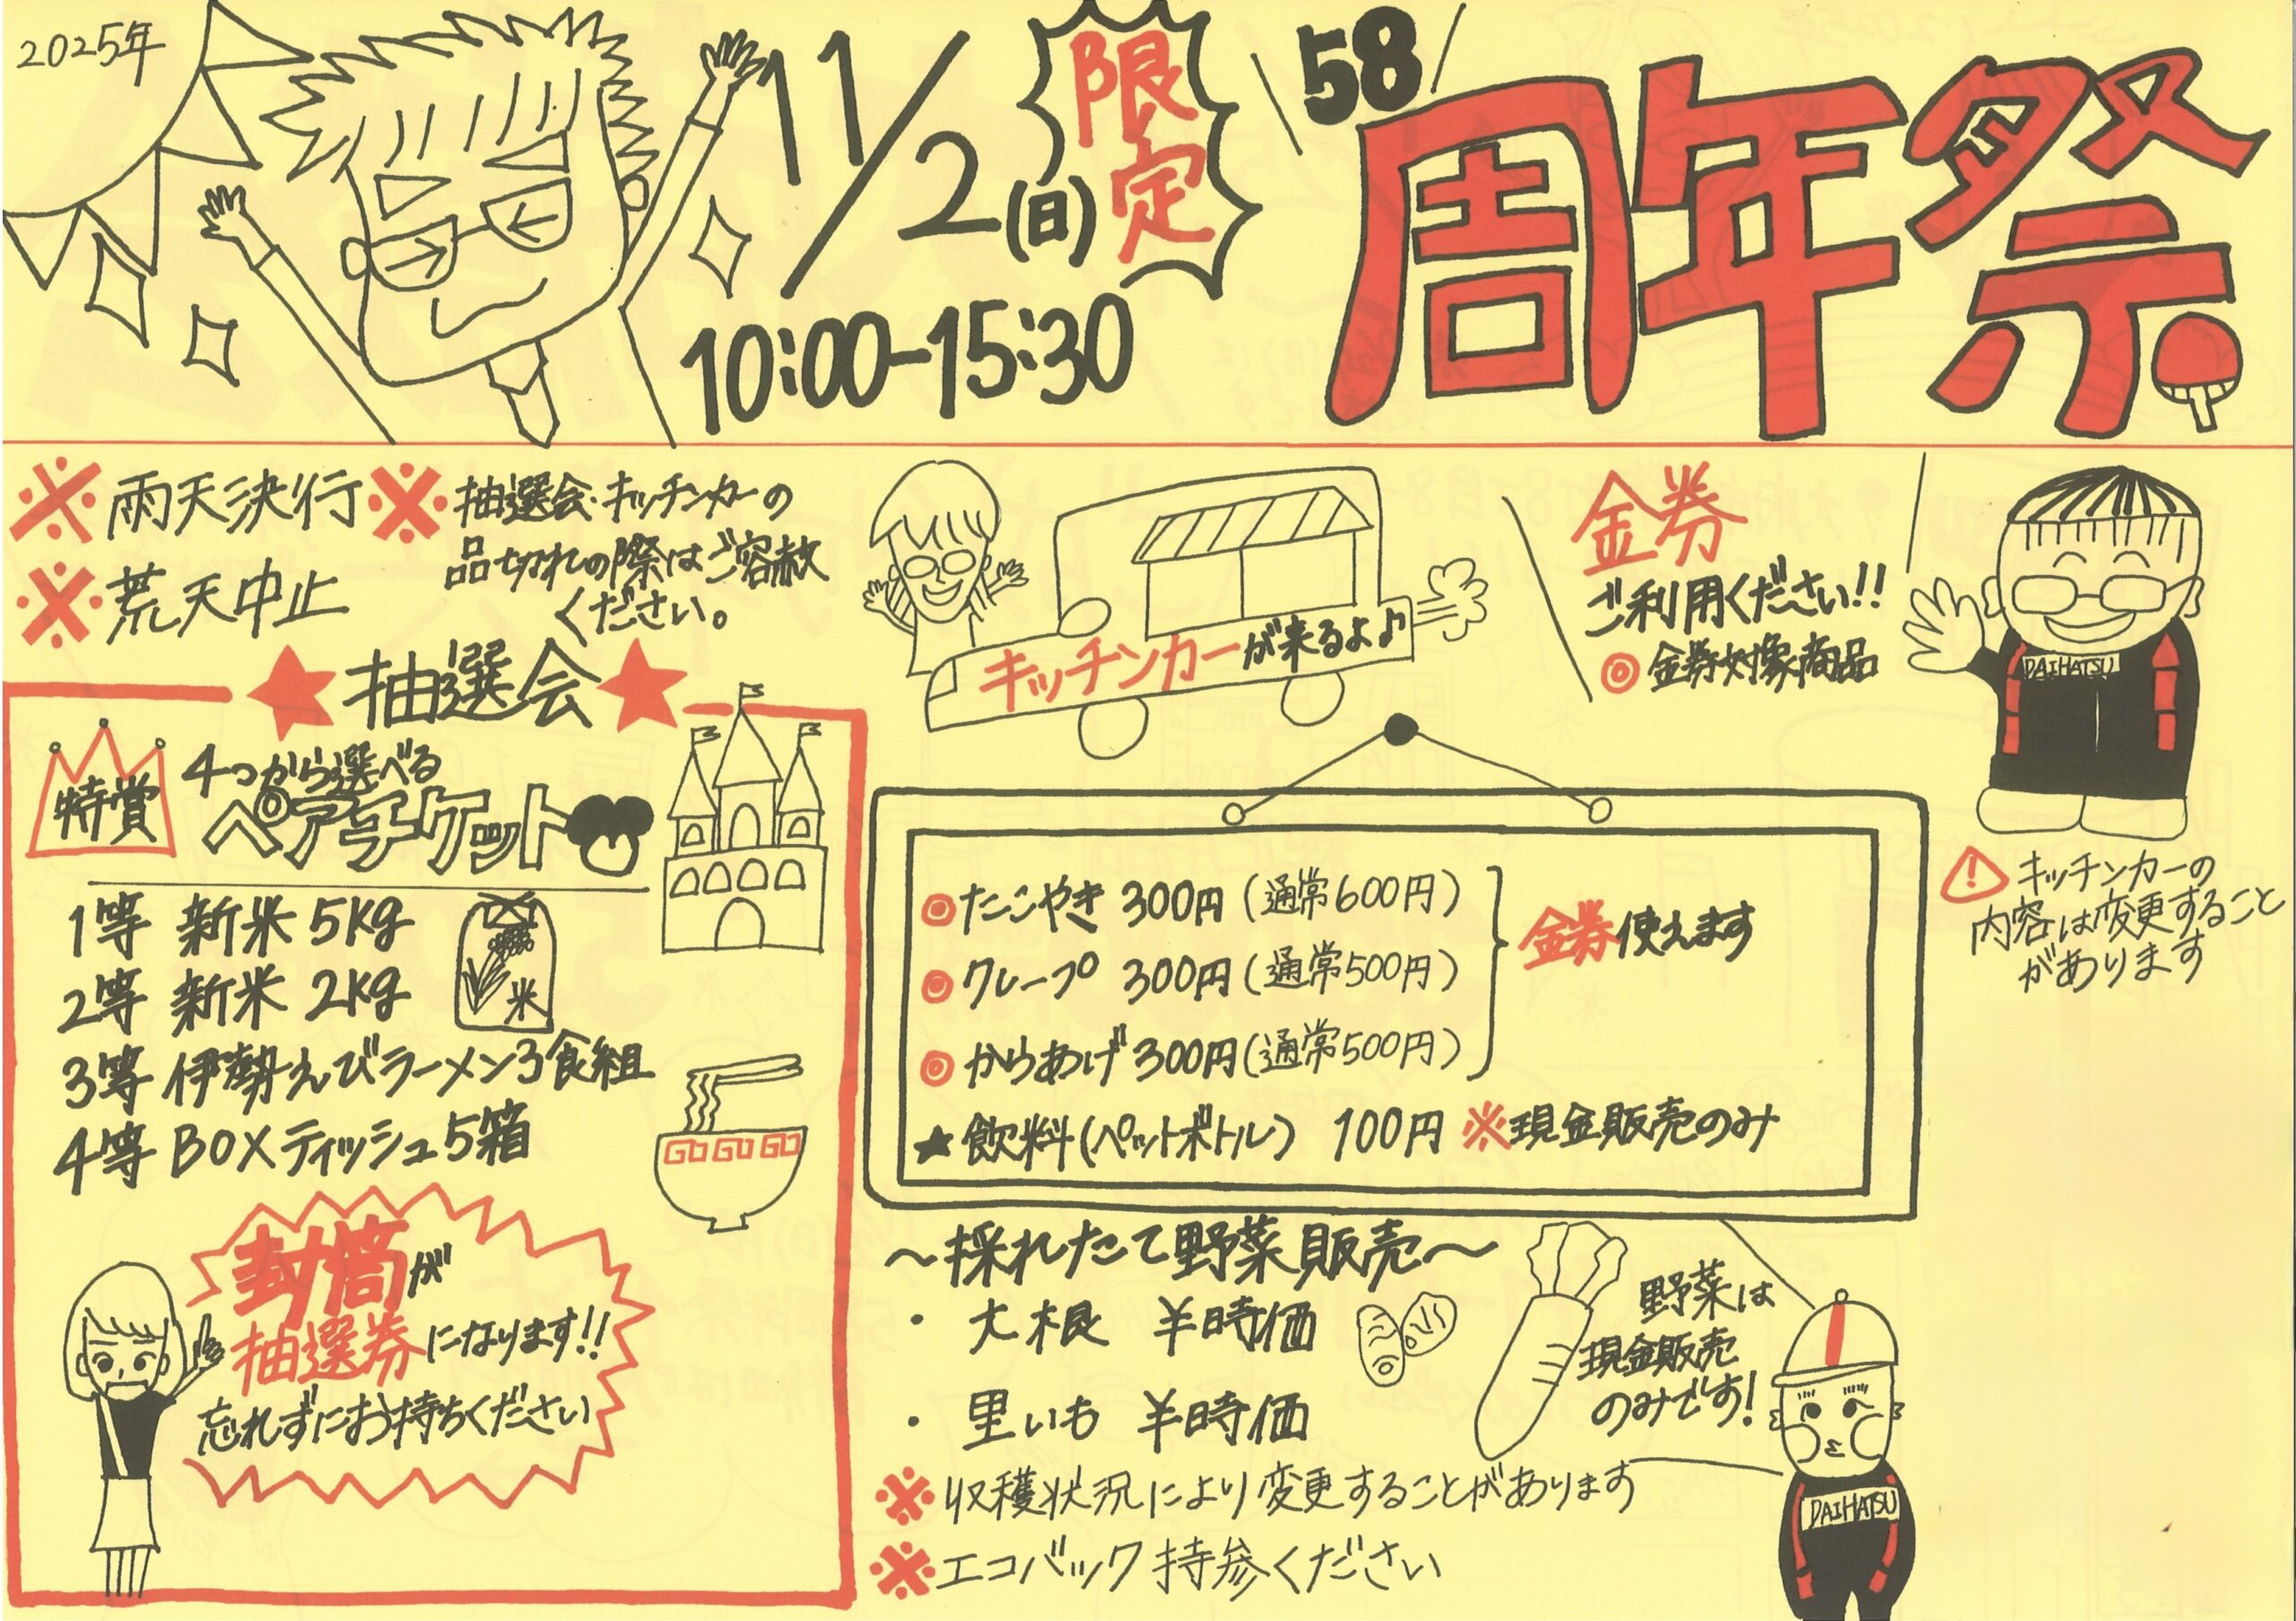 2025年
11/2(日)
限定
10:00-15:30
58
周年祭
※雨天決行
※荒天中止
※抽選会・キッチンカーの
品切れの際はご容赦
ください。
キッチンカーが来るよ♪
金券
ご利用ください!!
◎金券対象商品
DAIHATSU
★抽選会★
特賞
4つから選べる
ペアチケット
1等 新米 5kg
2等 新米 2kg
米
3等 伊勢えびラーメン3食組
4等 BOXティッシュ5箱
GO GO GO
封筒が
抽選券になります!!
忘れずにお持ちください
◎たこやき 300円(通常600円)
◎クレープ 300円(通常500円)
◎からあげ 300円(通常500円)
金券使えます
★飲料(ペットボトル) 100円 ※現金販売のみ
キッチンカーの
内容は変更すること
があります
~採れたて野菜販売~
・大根 ¥時価
・里いも ¥時価
野菜は
現金販売
のみです!
※収穫状況により変更することがあります
※エコバック持参ください
DAIHATSU